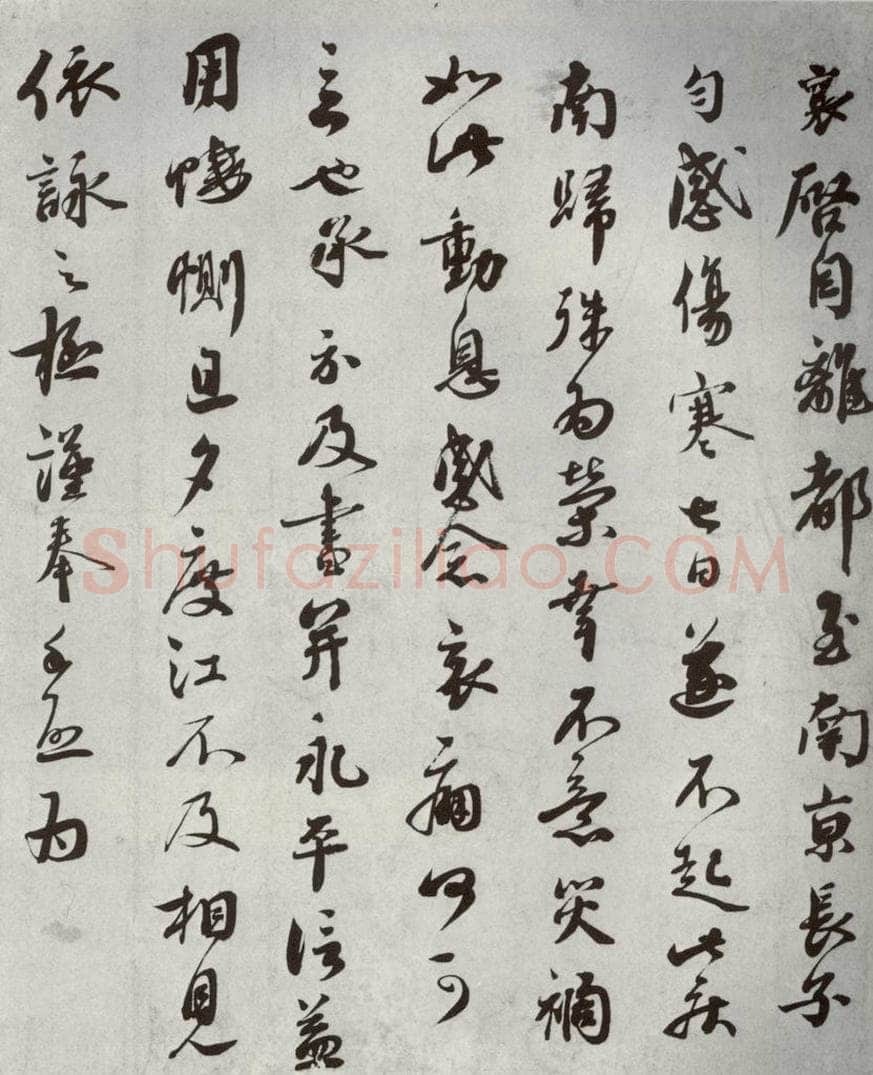 襄啓自離都至南京長子
勻感傷寒七日遂不起此疾
南歸殊為榮幸不意災禍
如此動息感念哀痛何可
言也承示及書并永平信益
用悽惻旦夕度江不及相見
依詠之極謹奉手啟為
Shufaziliao.COM